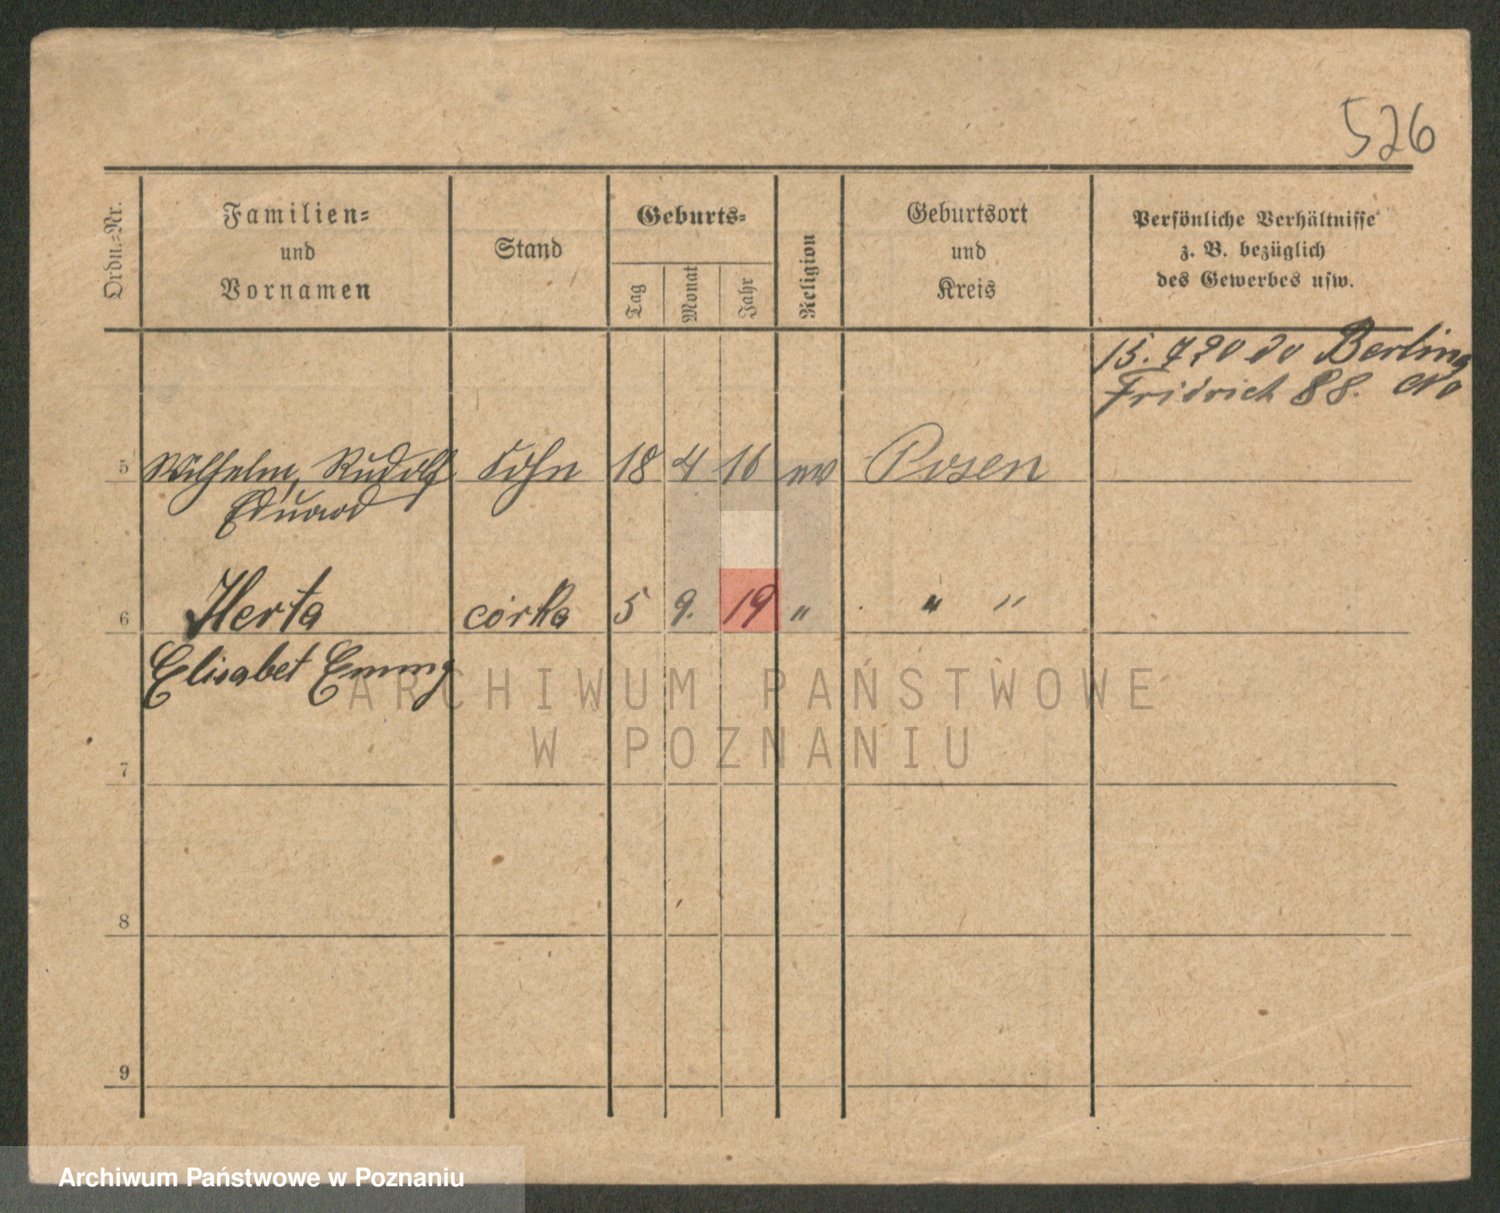 526
Ordn.-Nr.
Familien-
und
Vornamen
Stand
Geburts-
Tag
Monat
Jahr
Religion
Geburtsort
und
Kreis
Persönliche Verhältnisse
z. B. bezüglich
des Gewerbes usw.
15. 7 20 do Berlina
Fridrich 88.
5 Wilhelm, Rudolf Sohn 18 4 16 ev Posen
Eduard
6 Herta córka 5 9. 19 " " "
Elisabet Emmy
7
8
9
ARCHIWUM PAŃSTWOWE
W POZNANIU
Archiwum Państwowe w Poznaniu